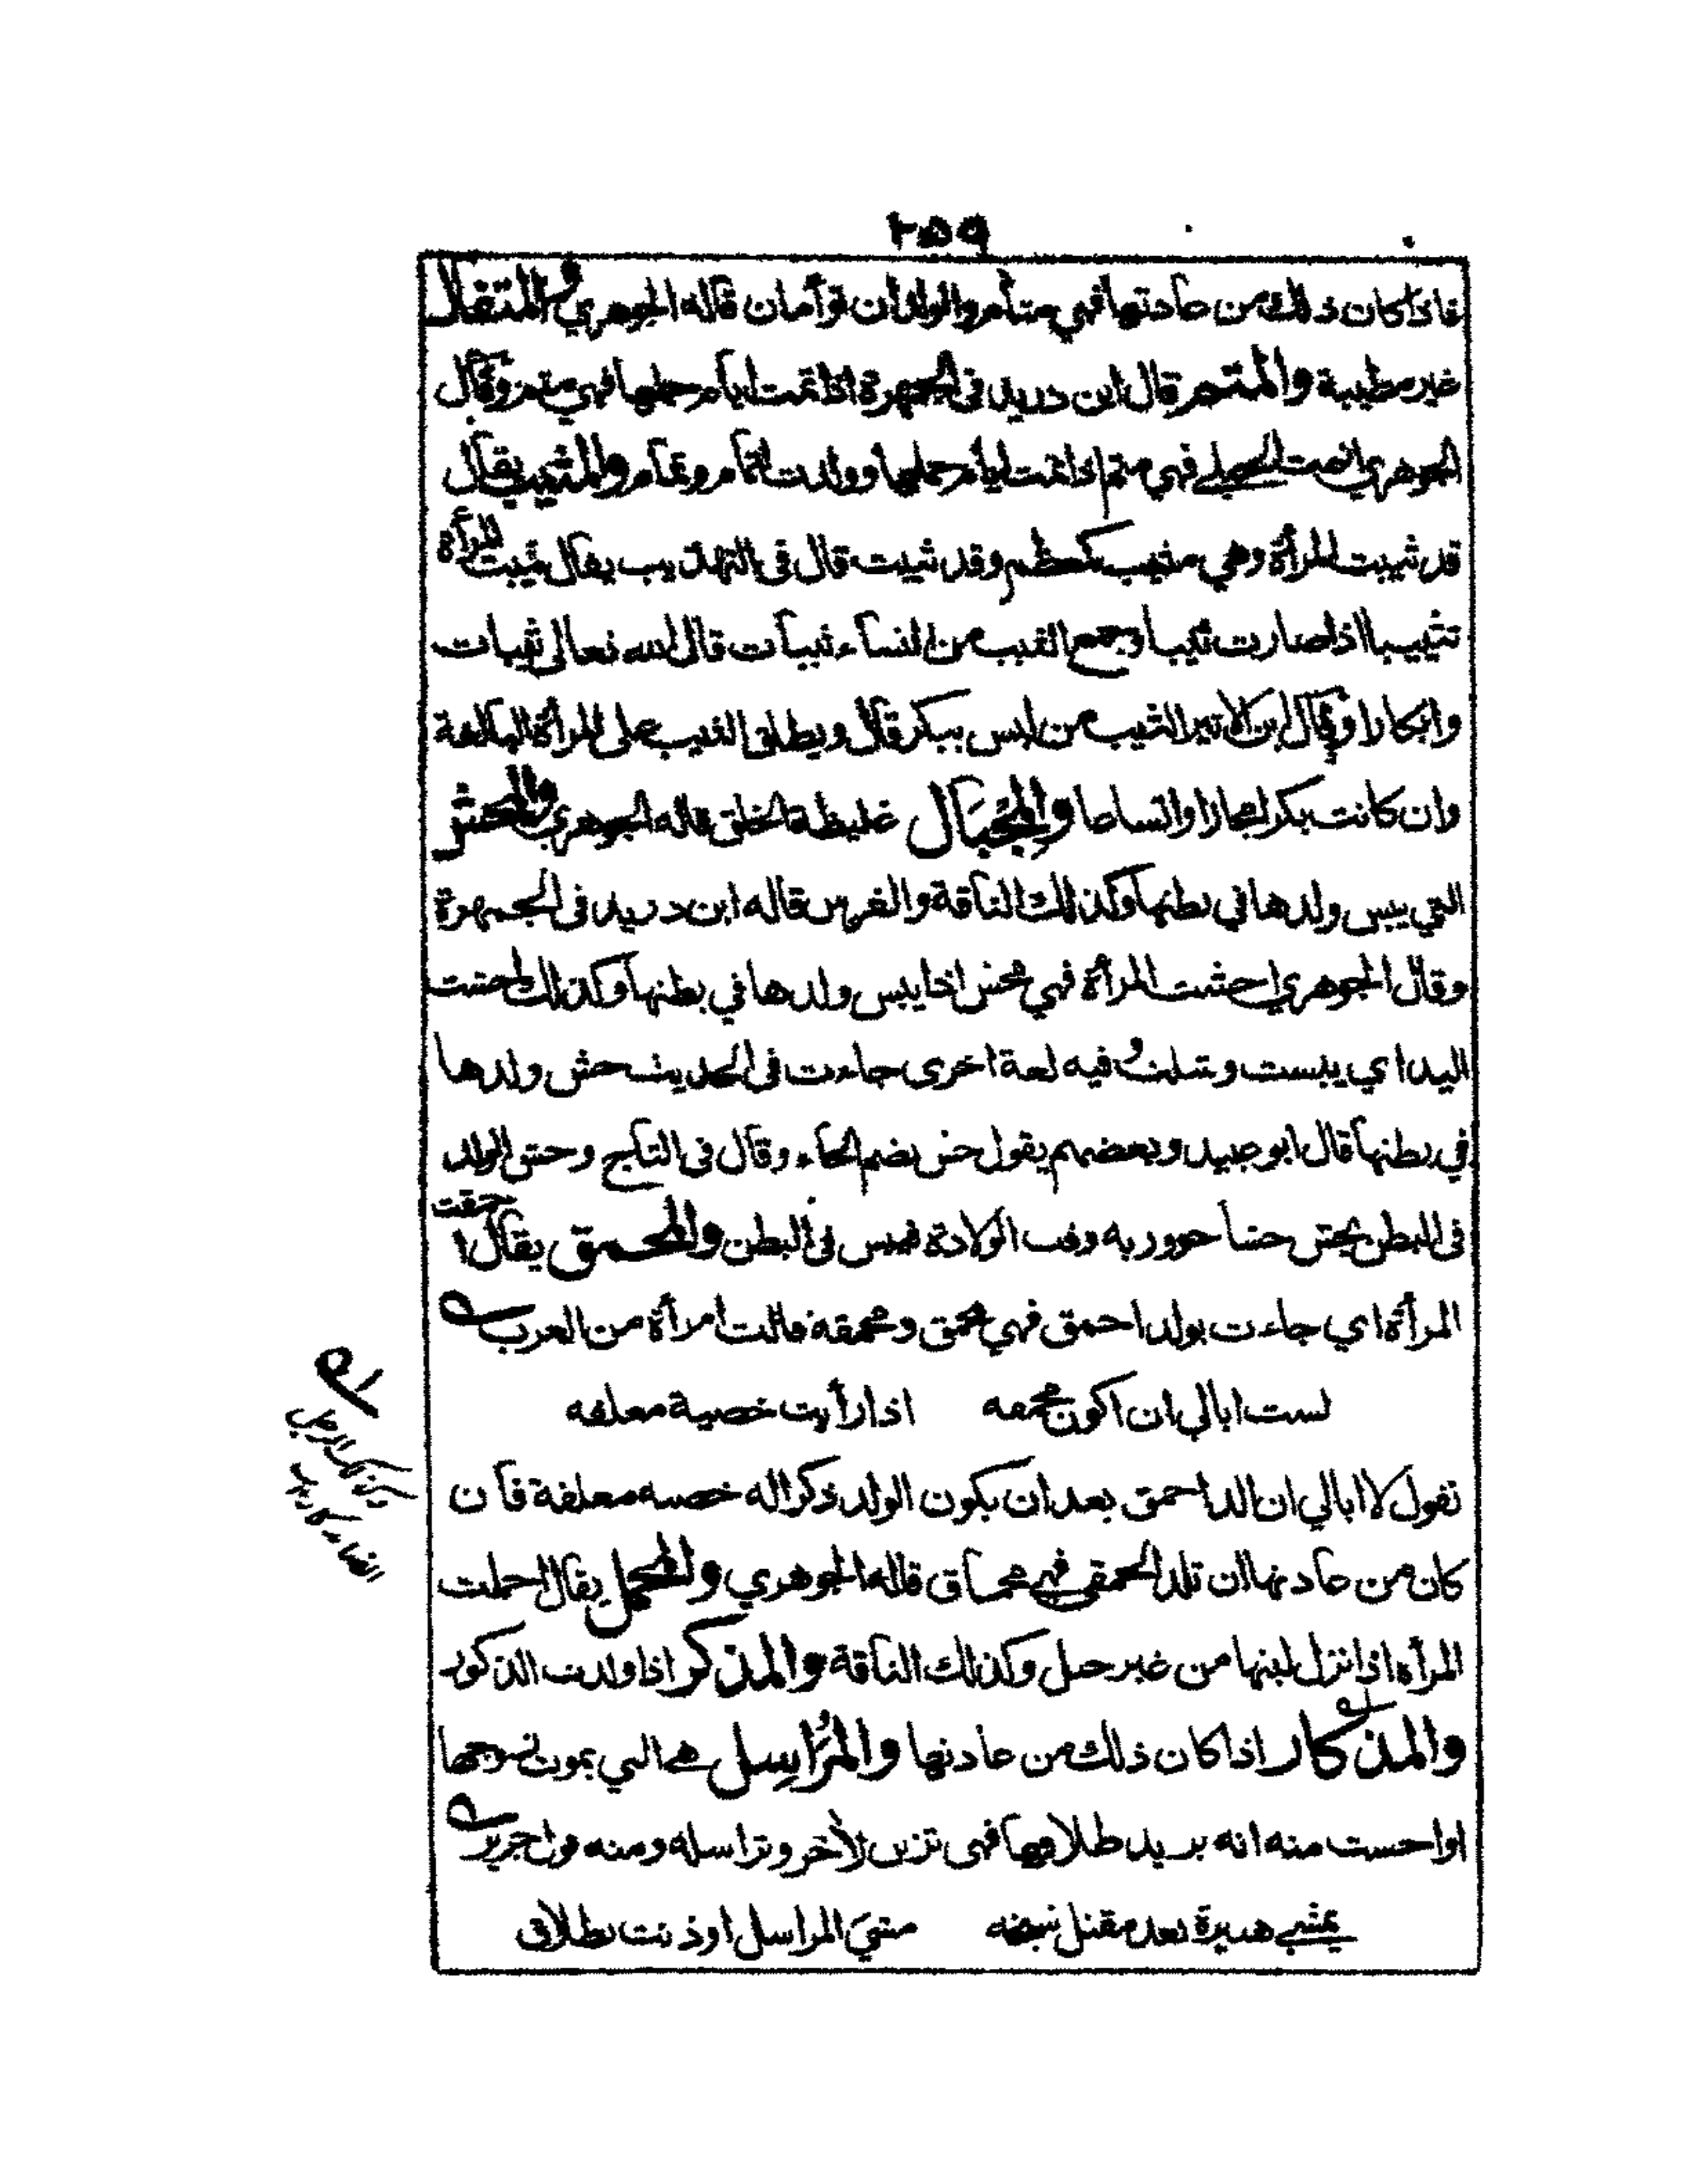 ٢٥٩
فاذا كان ذلك من عادتها فهي متآم والولدان توأمان قاله الجوهري والمتفال
غير مطيبة والمتم قال ابن دريد في الجمهرة اذا تمت ايام حملها فهي متم وقال
الجوهري اتمت الحبلى فهي متم اذا تمت ايام حملها وولدت لتمام وتمام والمثيب يقال
قد ثيبت المرأة وهي مثيب كمعظم وقد ثيبت قال في التهذيب يقال ثيبت المرأة
تثييبا اذا صارت ثيبا وجمع الثيب من النساء ثيبات قال الله تعالى ثيبات
وابكارا وقال ابن الاثير الثيب من ليس ببكر قال ويطلق الثيب على المرأة البالغة
وان كانت بكرا مجازا واتساعا والمجبال غليظة الخلق قاله الجوهري والمحش
التي يبس ولدها في بطنها وكذلك الناقة والفرس قاله ابن دريد في الجمهرة
وقال الجوهري احشت المرأة فهي محش اذا يبس ولدها في بطنها وكذلك احشت
اليد اي يبست وشلت وفيه لغة اخرى جاءت في الحديث حش ولدها
في بطنها قال ابو عبيد وبعضهم يقول حش بضم الحاء وقال في التاج وحش الولد
في البطن يحش حشا جوور به وقت الولادة فيبس في البطن والمحمق يقال احمقت
المرأة اي جاءت بولد احمق فهي محمق ومحمقة قالت امرأة من العرب
لست ابالي ان اكون محمقه اذا رأيت خصية معلقه
تقول لا ابالي ان الد احمق بعد ان يكون الولد ذكرا له خصية معلقة فان
كان من عادتها ان تلد الحمقى فهي محماق قاله الجوهري والمحمل يقال احملت
المرأة اذا نزل لبنها من غير حبل وكذلك الناقة والمذكر اذا ولدت الذكور
والمذكار اذا كان ذلك من عادتها والمُرَاسِل هي التي يموت زوجها
او احست منه انه يريد طلاقها فهي تزين لآخر وتراسله ومنه قول جرير
يمشي هبيرة بعد مقتل شيخه مشي المراسل اوذنت بطلاق